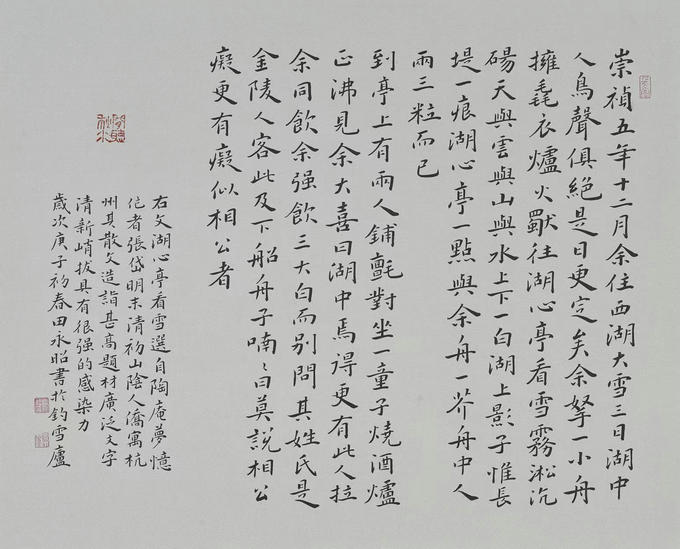 崇禎五年十二月余住西湖大雪三日湖中
人鳥聲俱絕是日更定矣余拏一小舟
擁毳衣爐火獨往湖心亭看雪霧淞沆
碭天與雲與山與水上下一白湖上影子惟長
堤一痕湖心亭一點與余舟一芥舟中人
兩三粒而已
到亭上有兩人鋪氈對坐一童子燒酒爐
正沸見余大喜曰湖中焉得更有此人拉
余同飲余强飲三大白而別問其姓氏是
金陵人客此及下船舟子喃〻曰莫說相公
癡更有癡似相公者
右文湖心亭看雪選自陶庵夢憶
作者張岱明末清初山陰人僑寓杭
州其散文造詣甚高題材廣泛文字
清新峭拔具有很强的感染力
歲次庚子初春田永昭書於釣雪廬